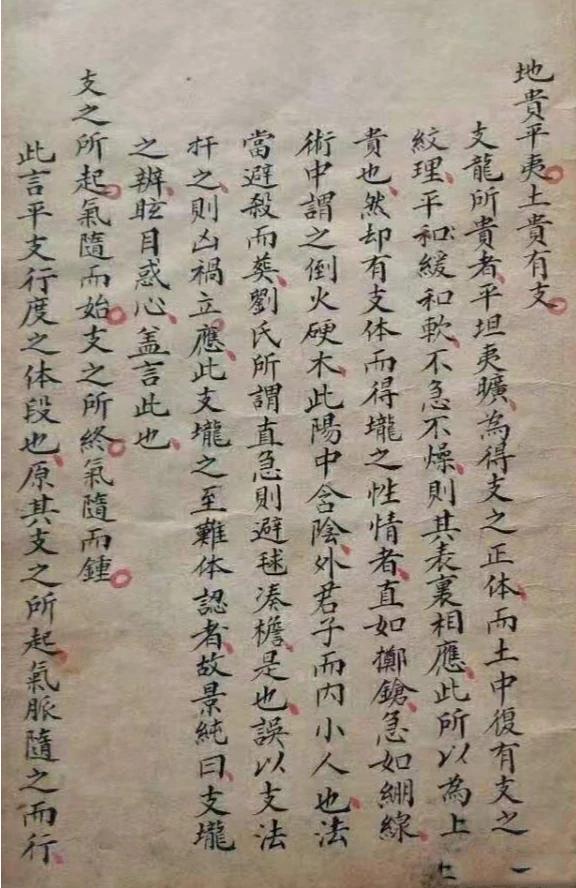 地貴平夷土貴有支
支龍所貴者平坦夷曠為得支之正体而土中復有支之
紋理平和緩和軟不急不燥則其表裏相應此所以為上
貴也然却有支体而得壠之性情者直如擲鎗急如綳線
術中謂之倒火硬木此陽中含陰外君子而内小人也法
當避殺而葬劉氏所謂直急則避毬凑檐是也誤以支法
扦之則凶禍立應此支壠之至難体認者故景純曰支壠
之辨眩目惑心盖言此也
支之所起氣隨而始支之所終氣隨而鍾
此言平支行度之体段也原其支之所起氣脈隨之而行